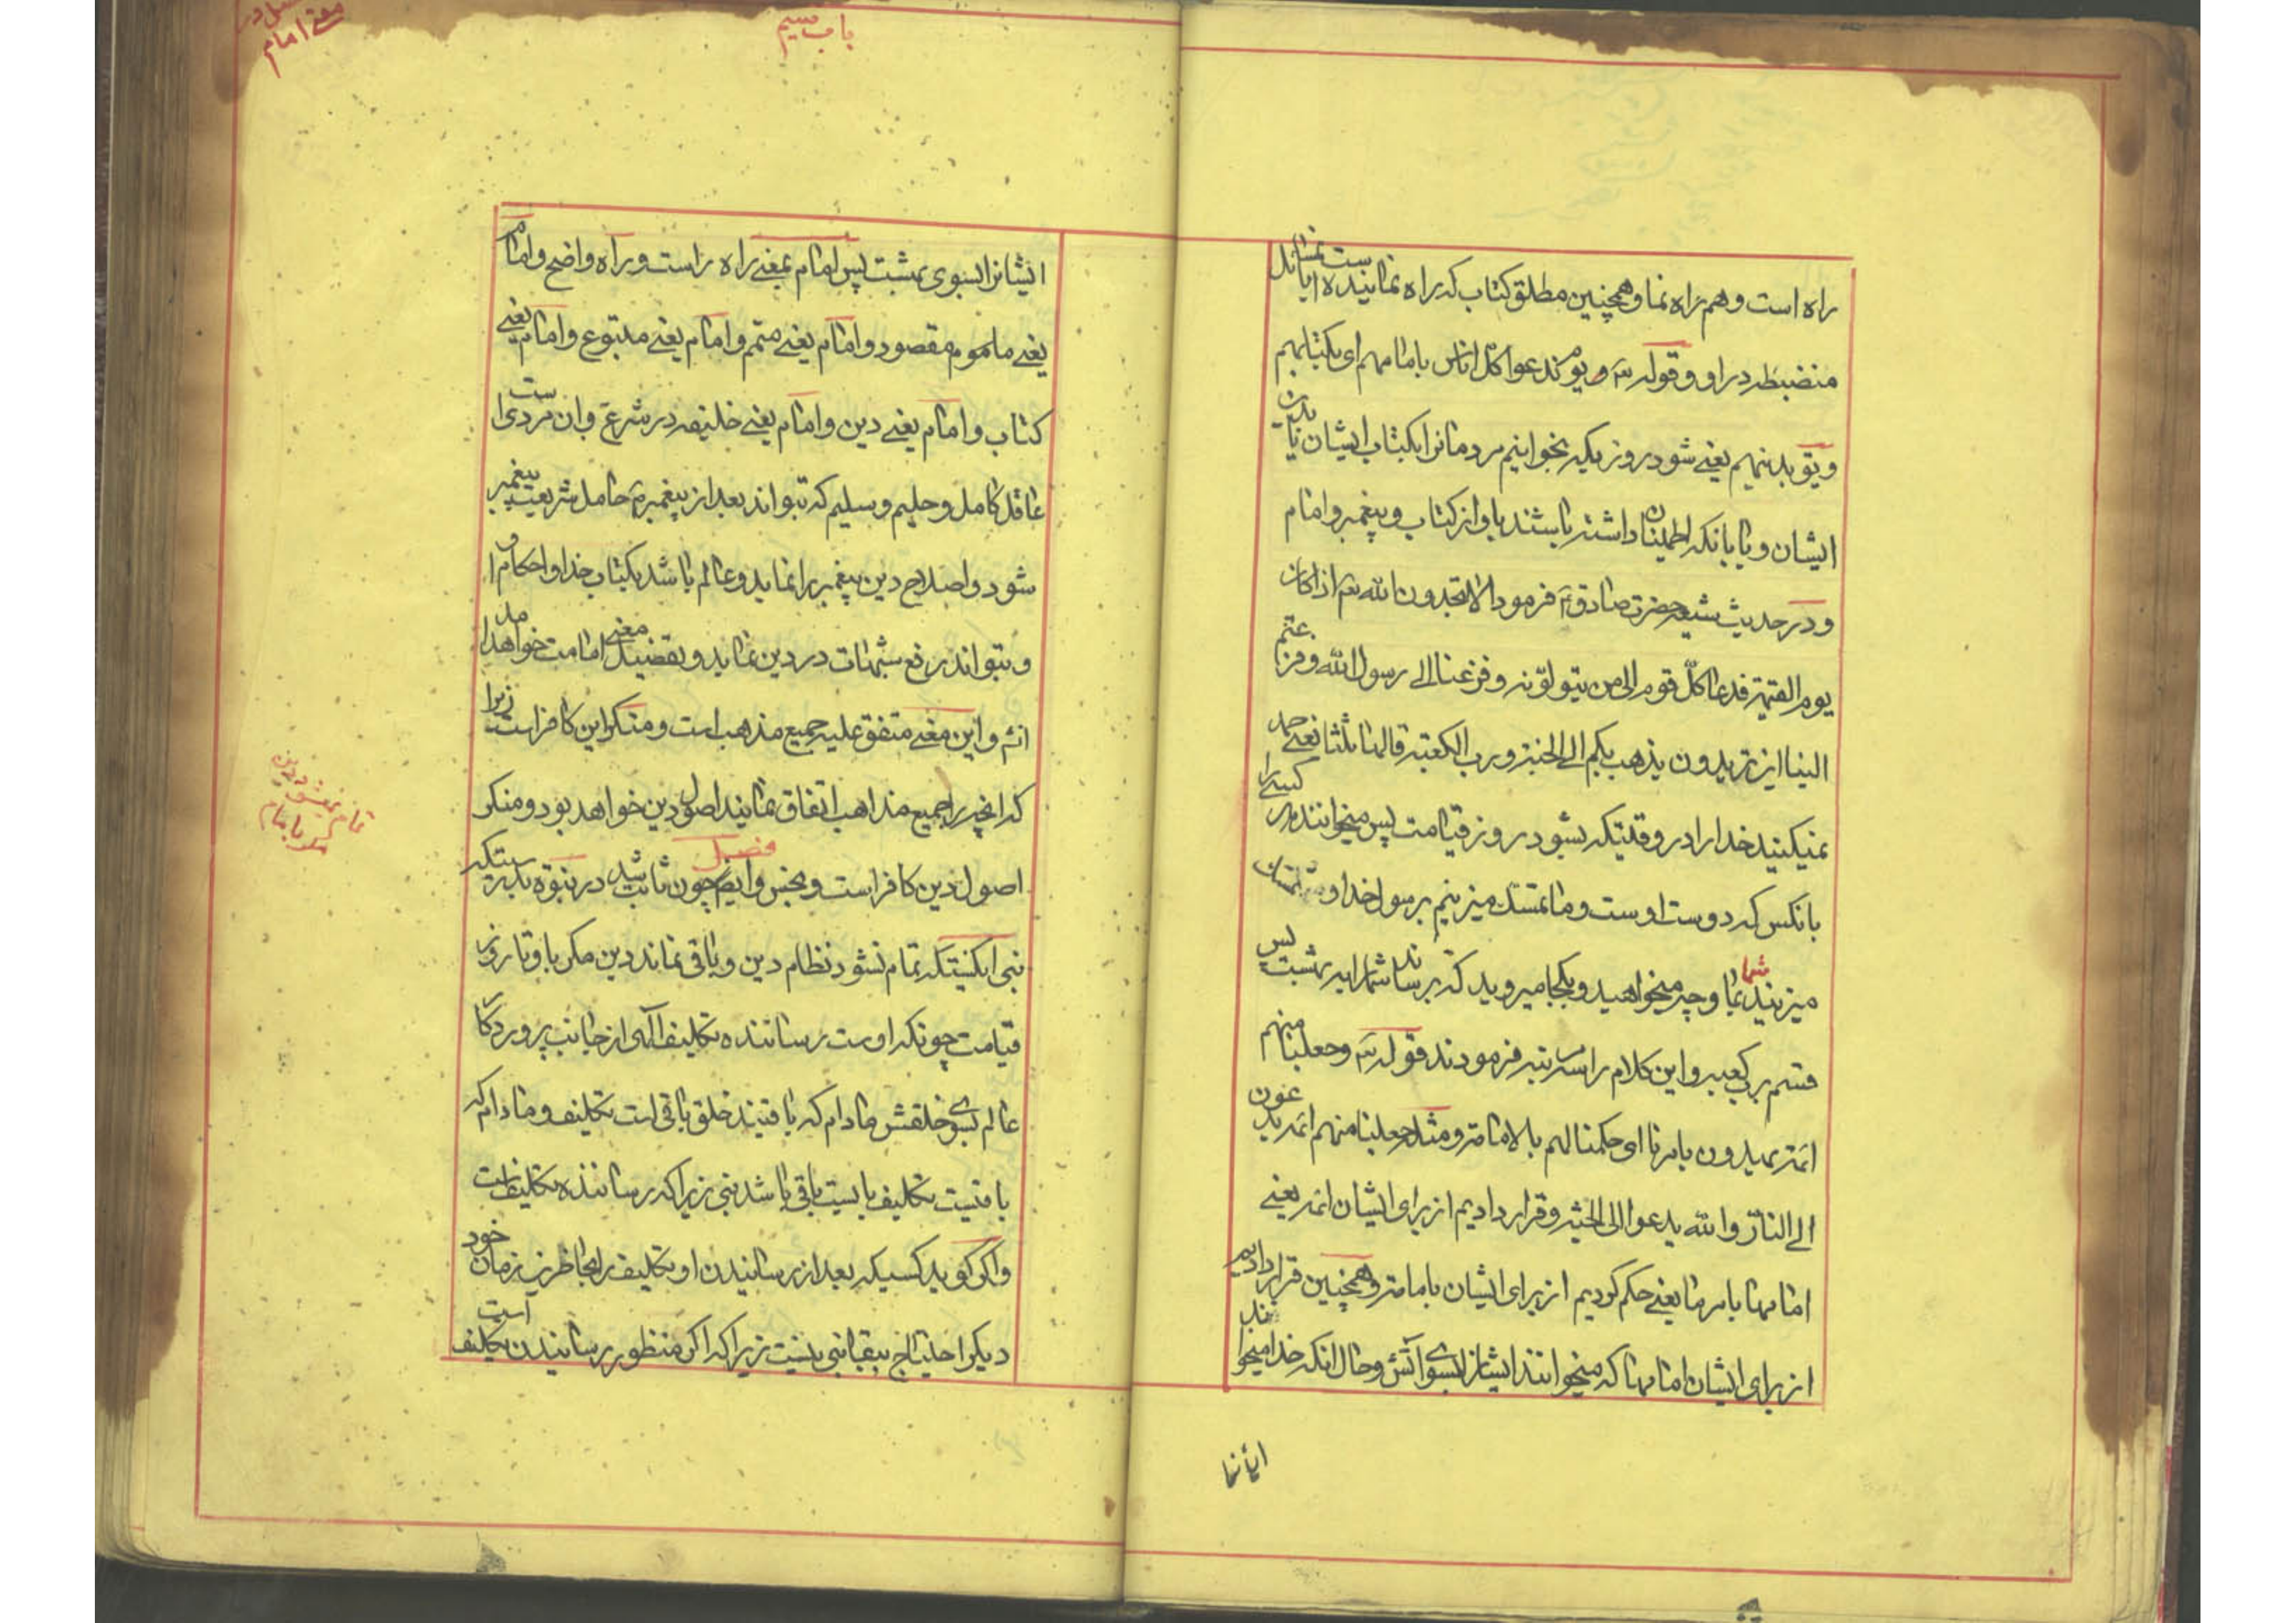 راه است وهم راه نما وهمچنین مطلق کتاب که راه نماینده است بمسائل
منضبطه در او وقوله تع ویوم ندعوا کل اناس بامامهم ای بکتابهم
ویق بدینهم یعنے شود روزیکه بخوانیم مردمانرا بکتاب ایشان یا بدین
ایشان ویا بانکه اطمینان داشته باشند باو از کتاب وپیغمبر وامام
ودر حدیث شیعه حضرت صادق ع فرمود الا تحمدون الله تع اذا کان
یوم القیمة فدعا کل قوم الی من یتولونه وفزعنا الے رسول الله وفزعتم
الینا این تریدون یذهب بکم الے الجنة ورب الکعبة قالها ثلثا یعنے حمد
نمیکنید خدا را در وقتیکه بشود روز قیامت پس میخوانند هر کسے را
بانکس که دوست اوست وما تمسک میزنیم برسول خدا و
میزنید شما بما وچه میخواهید وبکجا میروید که برساند شما را به بهشت پس
قسم برب کعبه واین کلام را سه مرتبه فرمودند قوله تع وجعلنا منهم
ائمة یهدون بامرنا ای حکمنا لهم بالامامة ومثله جعلنا منهم ائمة یدعون
الے النار والله یدعوا الی الجنة وقرار دادیم از برای ایشان ائمه یعنے
امامها بامر ما یعنے حکم کردیم از برای ایشان بامامة وهمچنین قرار دادیم
از برای ایشان امامها که میخوانند ایشانرا بسوی آتش وحال انکه خدا میخواند
ایشانرا
باب سیم
معنے امام
ایشانرا بسوی بهشت پس امام بمعنے راه راست وراه واضح وامام
یعنے ماموم مقصود وامام یعنے متمم وامام یعنے متبوع وامام یعنے
کتاب وامام یعنے دین وامام یعنے خلیفه در شرع وان مردی است
عاقل کامل وحلیم وسلیم که تواند بعد از پیغمبر ص حامل شریعت پیغمبر
شود واصلاح دین پیغمبر را نماید وعالم باشد بکتاب خدا واحکام او
وبتواند رفع شبهات در دین نماید وتفصیل معنے امامت خواهد امد
انش واین معنے متفق علیه جمیع مذهب است ومنکر این کافر است زیرا
که انچه را جمیع مذاهب اتفاق نمایند اصول دین خواهد بود ومنکر
اصول دین کافر است ونجس وایضا چون ثابت شد در نبوة بدرستیکه
فصل
نبی انکسیستکه تمام نشود نظام دین وباقی نماند دین مکر باو تا روز
تمام نمیشود دین مکر بامام
قیامت چونکه اوست رساننده تکلیف الهی از جانب پروردکار
عالم بسوی خلقش مادام که باقیند خلق باقی است تکلیف ومادام که
باقیست تکلیف بایست باقی باشد نبی زیرا که رساننده تکلیف است
واکر کوید کسیکه بعد از رسانیدن او تکلیف را بحاظرین زمان خود
دیکر احتیاج ببقا نبی نیست زیرا که اکر منظور رسانیدن تکلیف است